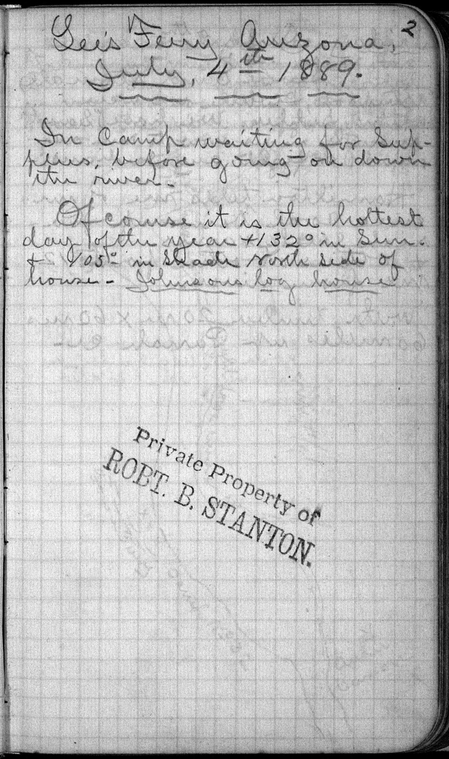 2
Lee's Ferry Arizona,
July, 4th 1889.
In Camp waiting for Sup-
plies, before going on down
the river.
Of course it is the hottest
day of the year +132° in Sun.
+ 105° in Shade North side of
house - Johnsons log house
Private Property of
ROBT. B. STANTON.